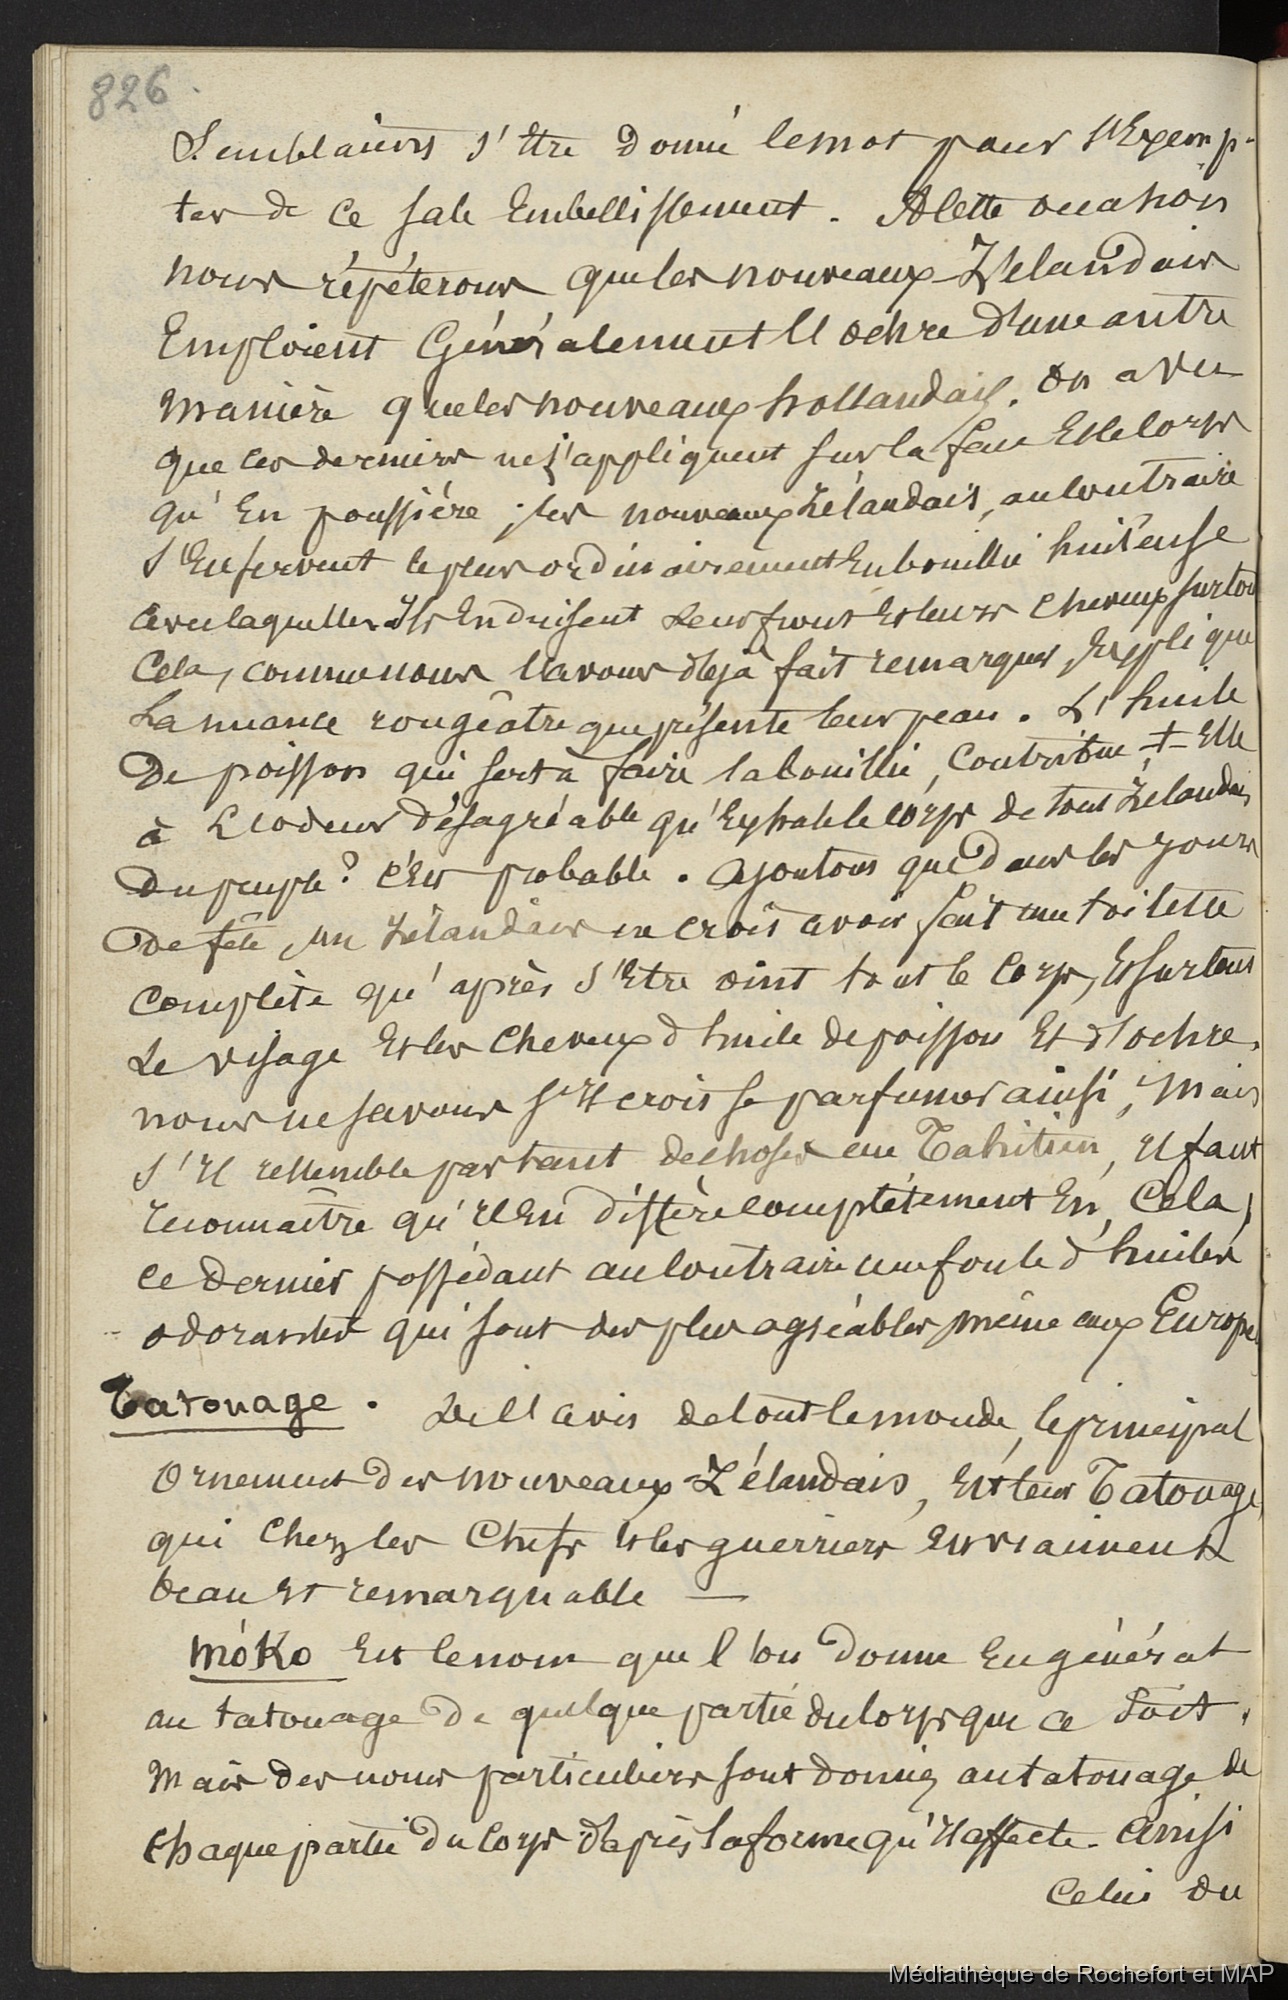 826.
Semblaient s'Etre Donné le mot pour s'Exemp-
ter de ce sale Embellissement. A cette occasion
nous répéterons que les nouveaux-Zélandais
Emploient Généralement l'ochre d'une autre
manière que les nouveaux hollandais. On a vu
que ces derniers ne s'appliquent sur la face Et le corps
qu'En poussière ; les nouveaux Zélandais, au contraire
s'En servent le plus ordinairement En bouillie huileuse
avec laquelle Ils Enduisent Leur front Et leurs cheveux surtout
Cela, comme nous l'avons déjà fait remarquer, Explique
La nuance rougeâtre que présente leur peau. L'huile
De poisson qui sert à faire la bouillie, Contribue-t-Elle
à L'odeur désagréable qu'Exhale le corps de tout Zélandais
Du peuple ? C'Est probable. Ajoutons que Dans les jours
De fête, un Zélandais ne croit avoir fait une toilette
Complète qu'après s'Etre oint tout le Corps, Et surtout
Le visage Et les Cheveux d'huile de poisson Et d'ochre.
nous ne savons s'Il croit se parfumer ainsi, Mais
s'Il ressemble par tant de choses au Tahitien, Il faut
reconnaître qu'Il En diffère complètement En Cela,
ce Dernier possédant au contraire une foule d'huiles
odorantes qui sont des plus agréables, même aux Europé
Tatouage. De l'avis de tout le monde, le principal
Ornement Des nouveaux-Zélandais, Est leur Tatouage,
qui Chez les Chefs Et les guerriers Est vraiment
beau Et remarquable —
Móko Est le nom que l'on Donne En général
au tatouage De quelque partie du corps que ce soit.
Mais des noms particuliers sont donnés au tatouage de
Chaque partie Du Corps d'après la forme qu'Il affecte. Ainsi
Celui du
Médiathèque de Rochefort et MAP